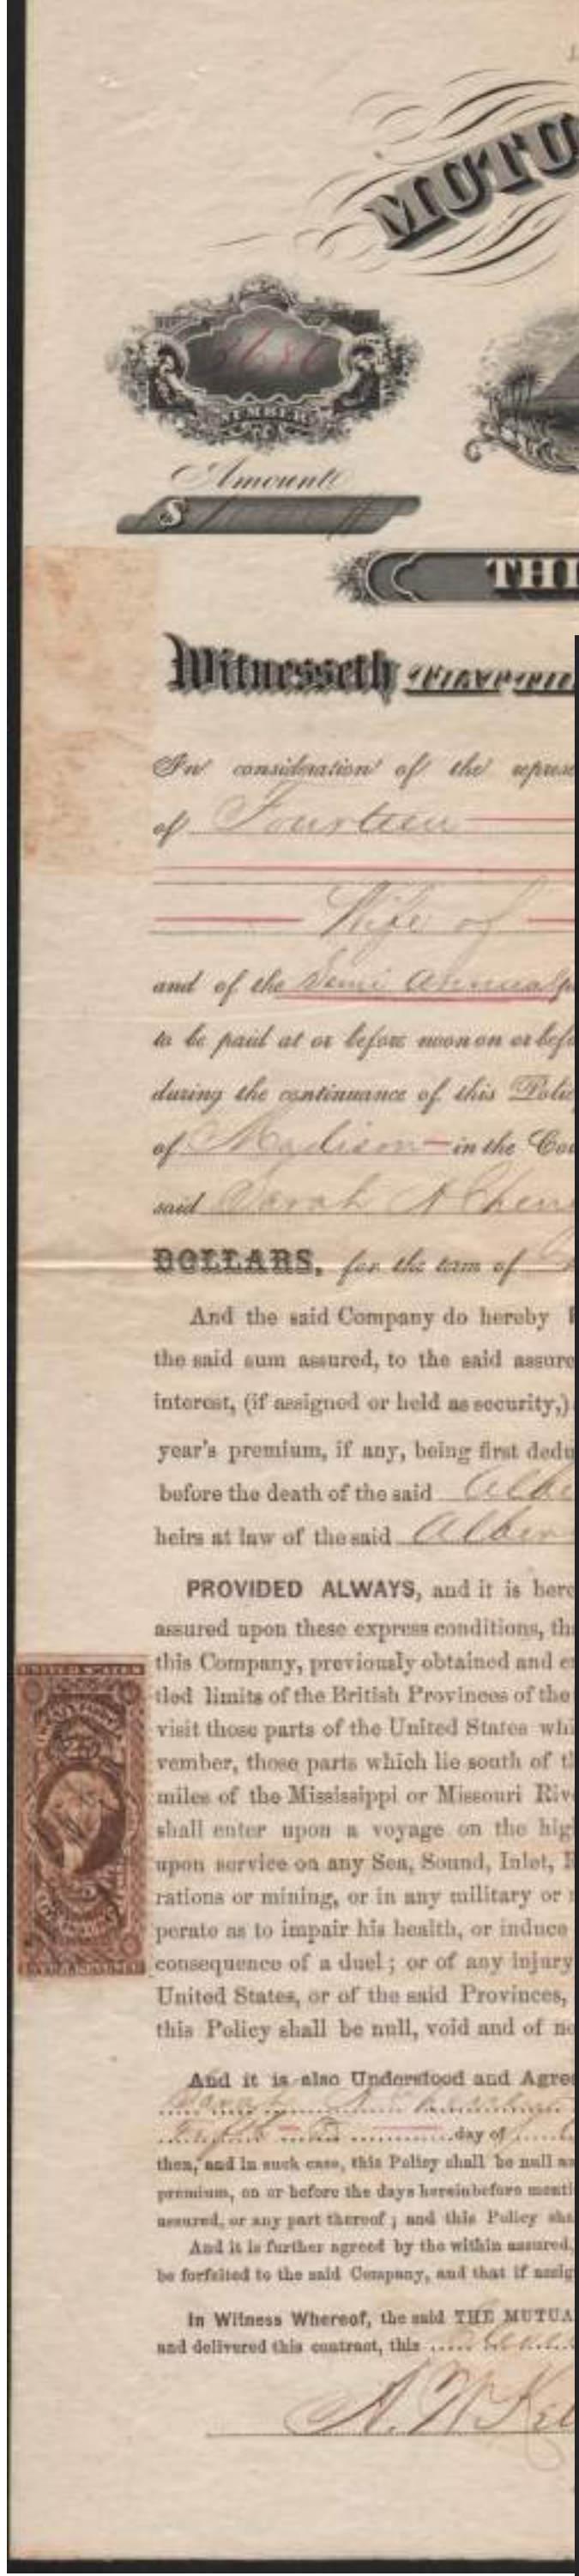 MUTU
NUMBER
Amount
$
THI
Witnesseth THAT TH
In consideration of the represe
of Fourteen
Wife of
and of the Semi Annual p
to be paid at or before noon on or befo
during the continuance of this Polic
of Madison in the Cou
said Sarah A Chen
DOLLARS, for the term of
And the said Company do hereby
the said sum assured, to the said assure
interest, (if assigned or held as security,)
year's premium, if any, being first dedu
before the death of the said Albe
heirs at law of the said Alber
PROVIDED ALWAYS, and it is here
assured upon these express conditions, tha
this Company, previously obtained and e
tled limits of the British Provinces of the
visit those parts of the United States whi
vember, those parts which lie south of t
miles of the Mississippi or Missouri Riv
shall enter upon a voyage on the hig
upon service on any Sea, Sound, Inlet, R
rations or mining, or in any military or
perate as to impair his health, or induce
consequence of a duel; or of any injury
United States, or of the said Provinces,
this Policy shall be null, void and of no
UNITED STATES
25
And it is also Understood and Agree
day of
then, and in such case, this Policy shall be null a
premium, on or before the days hereinbefore menti
assured, or any part thereof; and this Policy sha
And it is further agreed by the within assured,
be forfeited to the said Company, and that if assig
In Witness Whereof, the said THE MUTUA
and delivered this contract, this
A. W. Kel